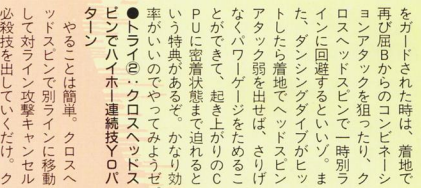 をガードされた時は、着地で
再び屈Bからのコンビネーシ
ョンアタックを狙ったり、ク
ロスヘッドスピンで一時別ラ
インに回避するといいゾ。ま
た、ダンシングダイブがヒッ
トしたら着地でヘッドスピン
アタック弱を出せば、さりげ
なくパワーゲージをためるこ
とができて、起き上がりのC
PUに密着状態まで迫れると
いう特典があるぞ。かなり効
率がいいのでやってみよーゼ。
●トライ②：クロスヘッドス
ピンでハイホー連続技YOパ
ターン
やることは簡単。クロスヘ
ッドスピンで別ラインに移動
して対ライン攻撃キャンセル
必殺技を出していくだけ。ク